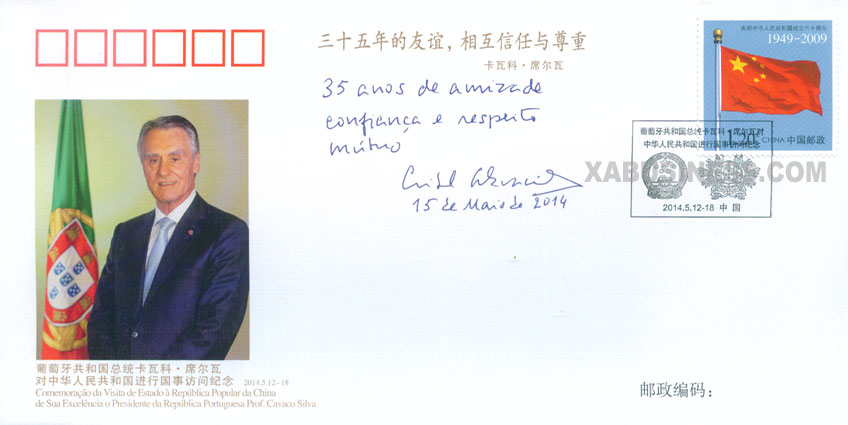 三十五年的友谊，相互信任与尊重
卡瓦科·席尔瓦
35 anos de amizade
confiança e respeito
mútuo
15 de Maio de 2014
庆祝中华人民共和国成立六十周年
1949-2009
1.20元
CHINA 中国邮政
葡萄牙共和国总统卡瓦科·席尔瓦对
中华人民共和国进行国事访问纪念
2014.5.12-18 中国
XABUSINESS.COM
葡萄牙共和国总统卡瓦科·席尔瓦
对中华人民共和国进行国事访问纪念 2014.5.12-18
Comemoração da Visita de Estado à República Popular da China
de Sua Excelência o Presidente da República Portuguesa Prof. Cavaco Silva
邮政编码：